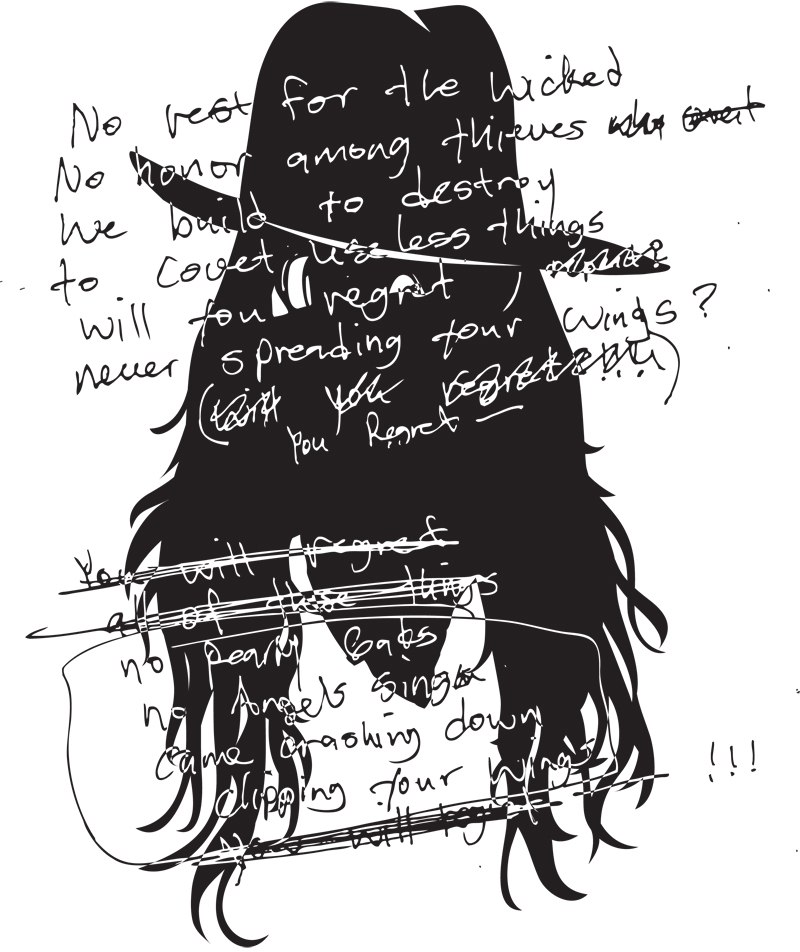 No rest for the wicked
No honor among thieves who covet
We build to destroy
to covet useless things
will you regret
never spreading your wings?
(will you regret !!!!)
you Regret
You will regret
all of these things
no Pearly Gates
no Angels Sing
Came crashing down
clipping your wings !!!
You will